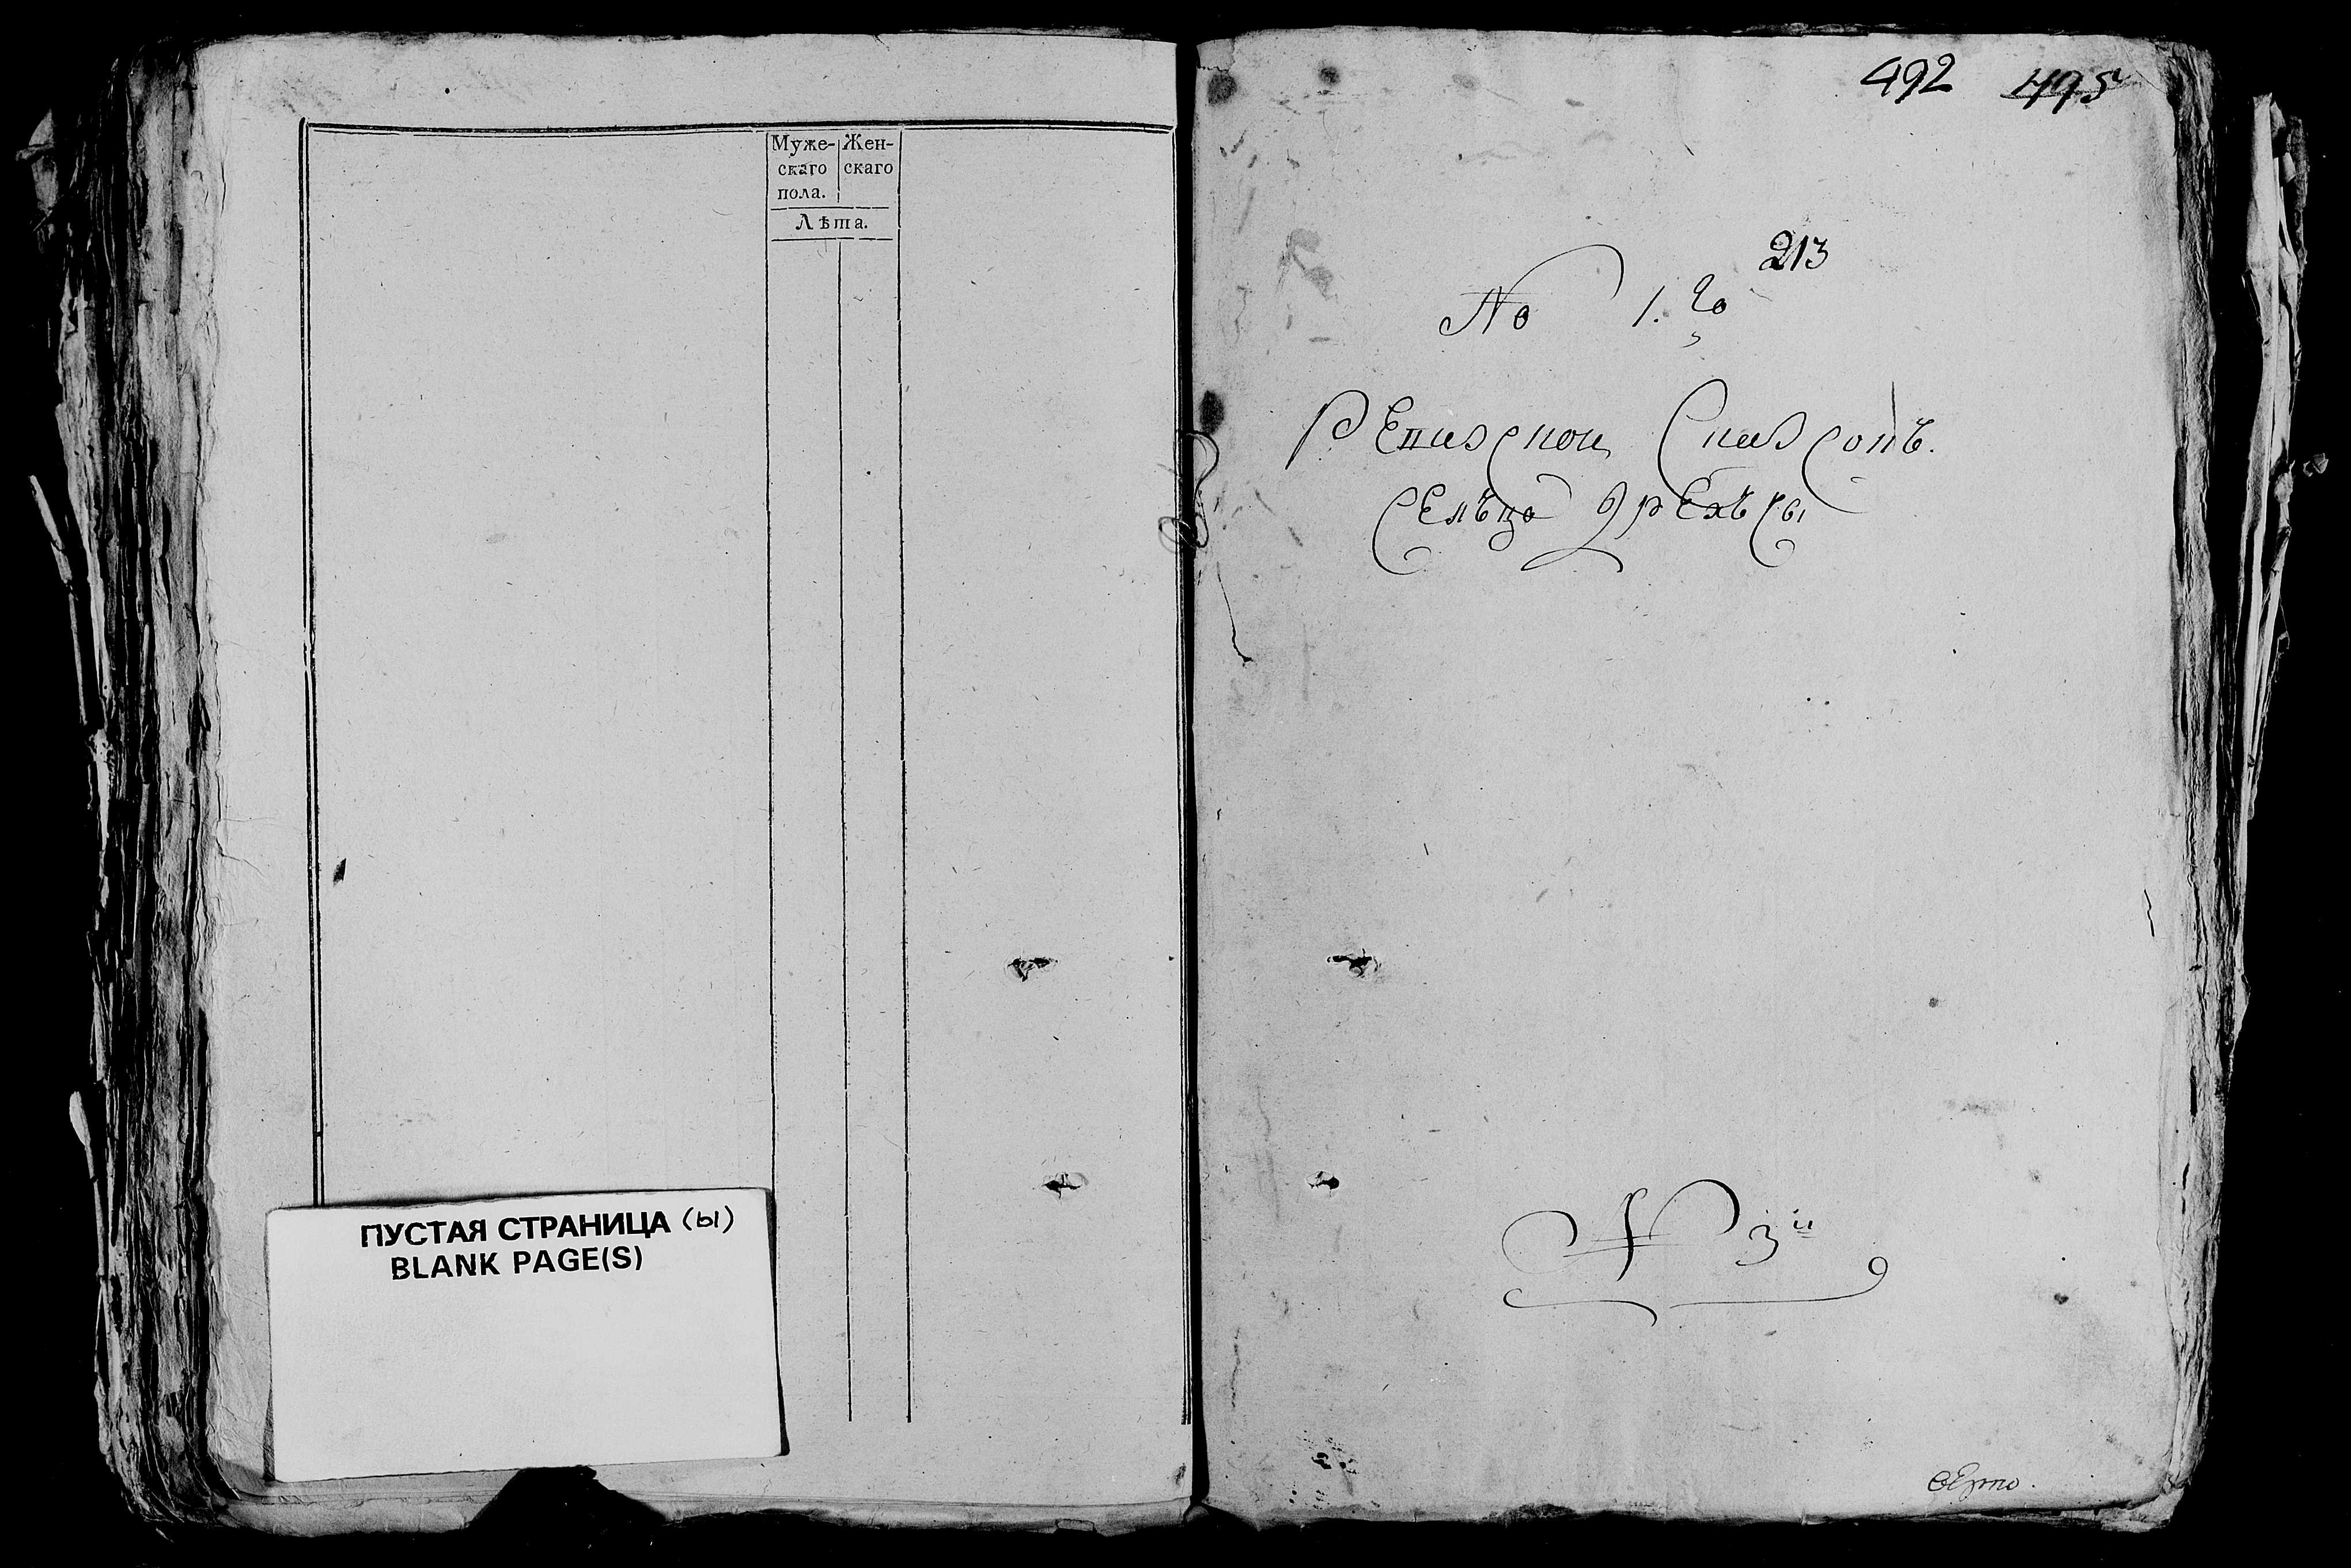 Муже-
скаго
пола.
Жен-
скаго
Лѣта.
ПУСТАЯ СТРАНИЦА (ы)
BLANK PAGE(S)
492 495
213
No 1.го
Ревизской Списокъ.
Сельца
N 3й